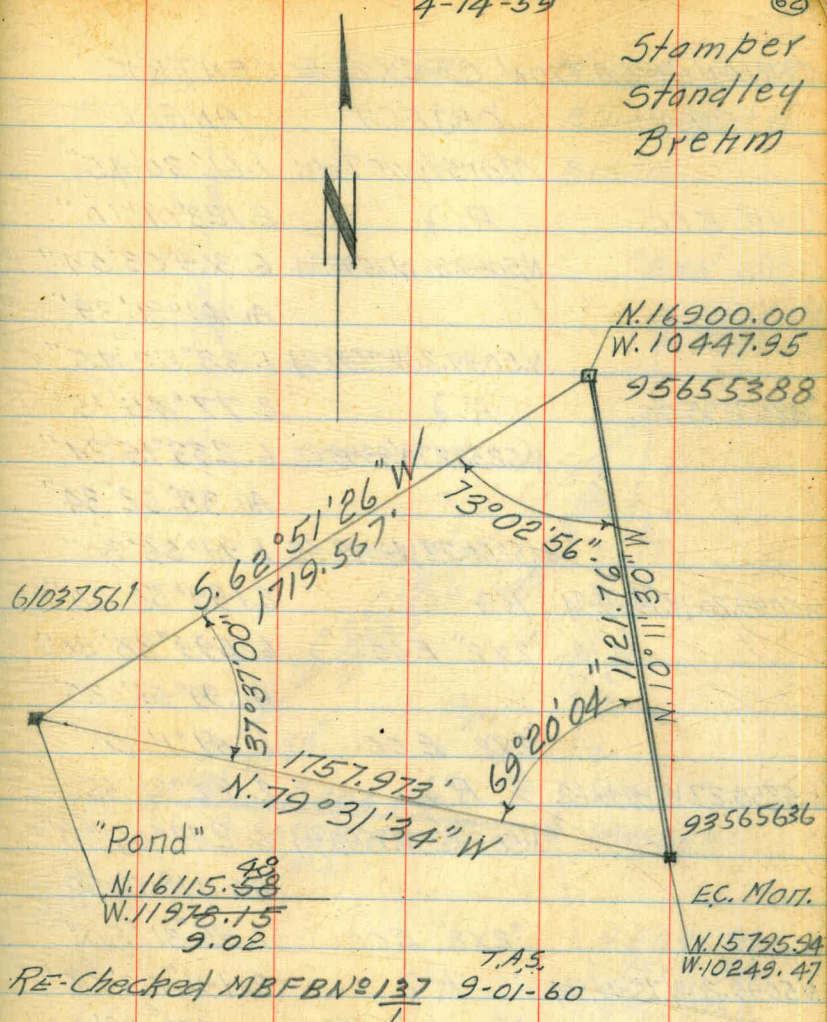 4-14-59
62
Stamper
Standley
Brehm
N
N.16900.00
W.10447.95
95655388
S.62°51'26"W
1719.567'
73°02'56"
61037561
37°37'00"
= 1121.76
N.10°11'30"W
69°20'04"
1757.973'
N.79°31'34"W
93565636
"Pond"
48
N.16115.58
W.11978.15
9.02
E.C. Mon.
N.15795.94
W.10249.47
T.A.S.
RE-Checked MBFBNº137 9-01-60
1